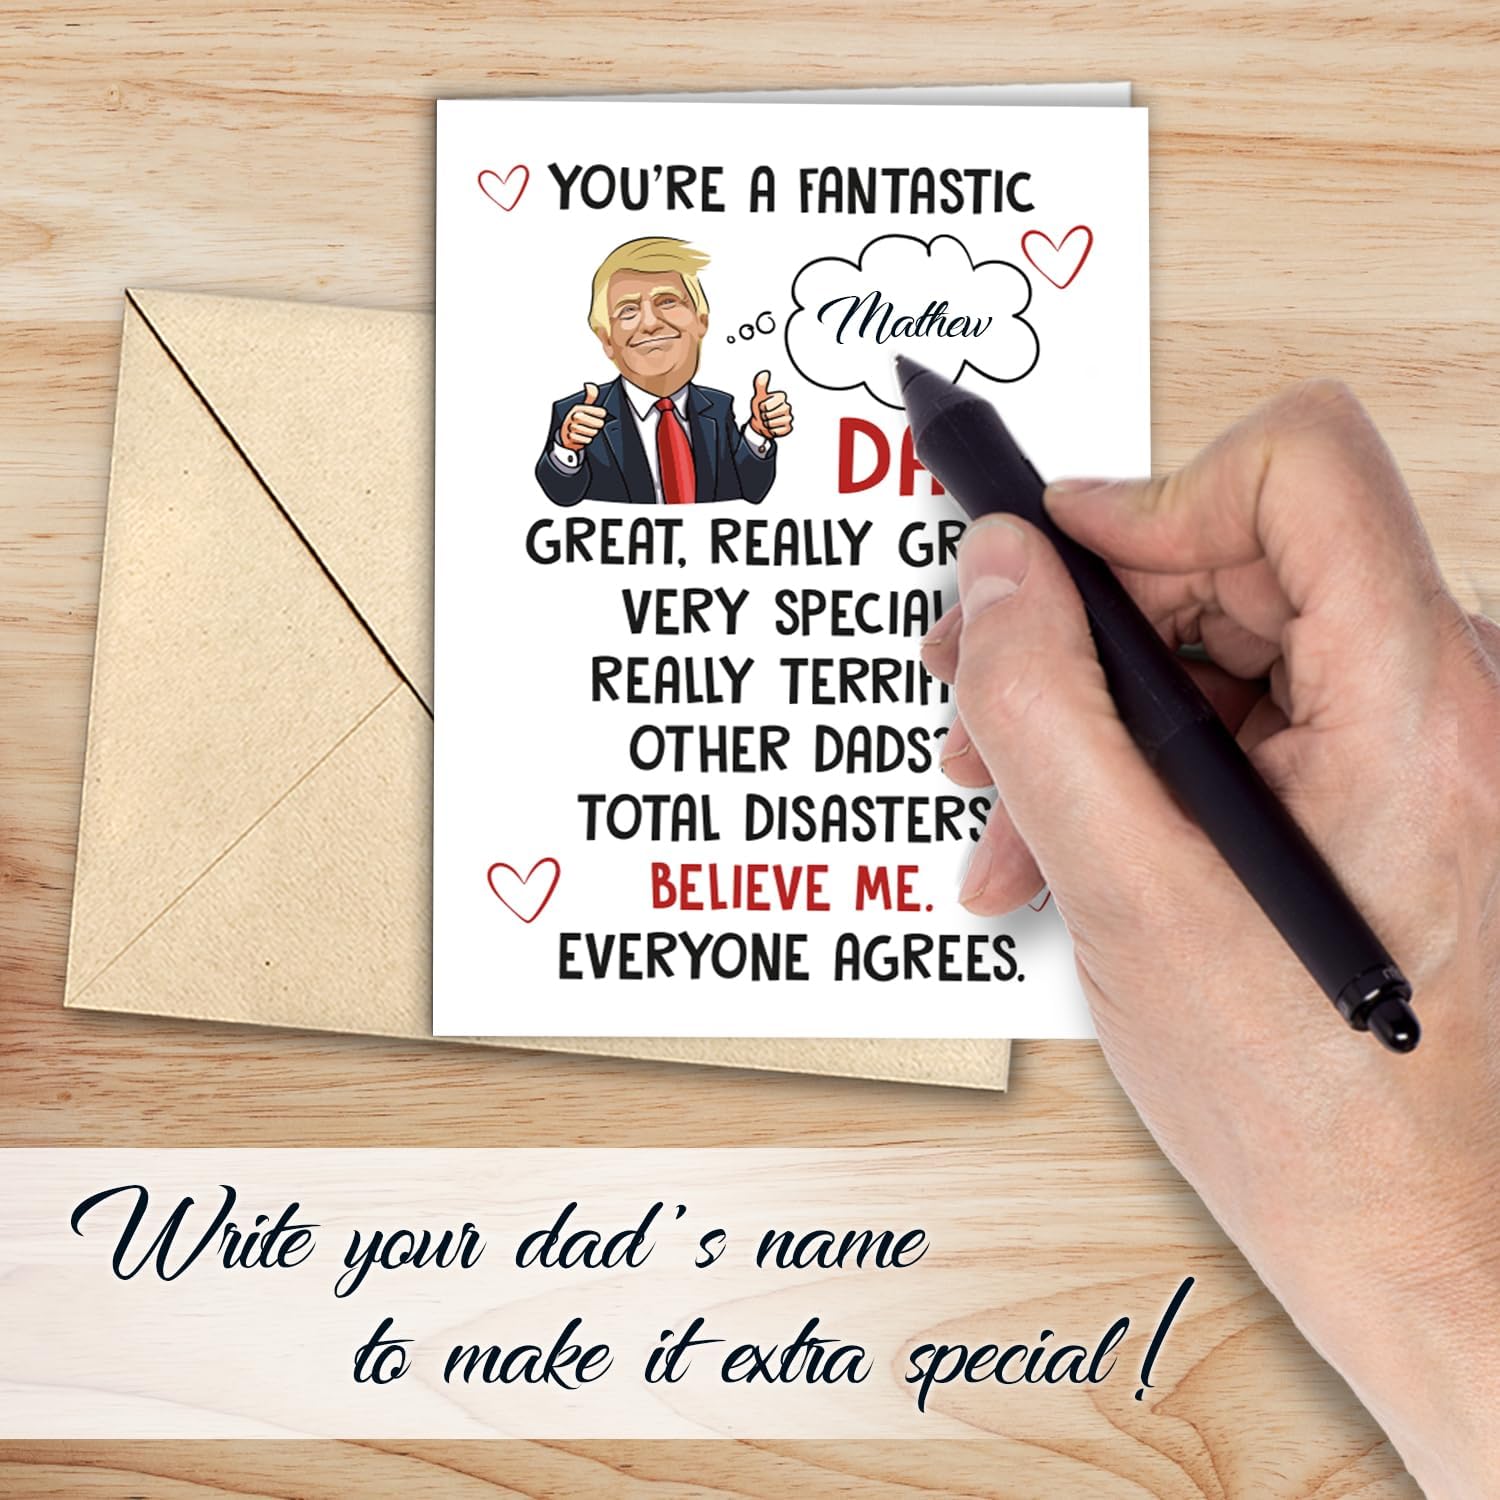 YOU'RE A FANTASTIC
Mathew
GREAT, REALLY
VERY SPECIAL
REALLY
OTHER DADS?
TOTAL DISASTERS
BELIEVE ME.
EVERYONE AGREES.
Write your dad's name
to make it extra special!